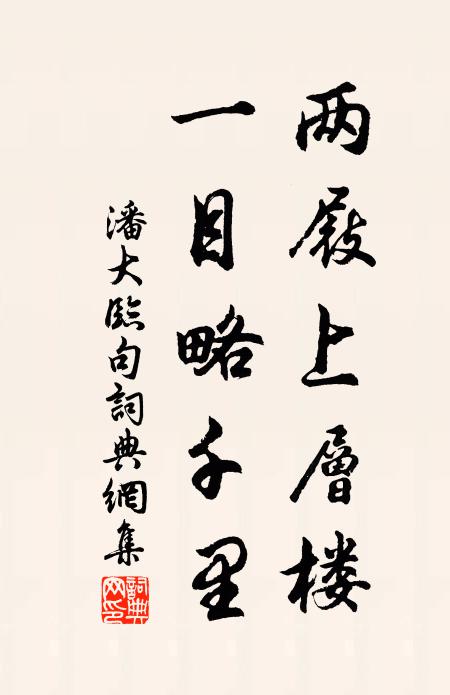 两屐上層楼
一目略千里
潘大臨句詞典網集
詞典网印